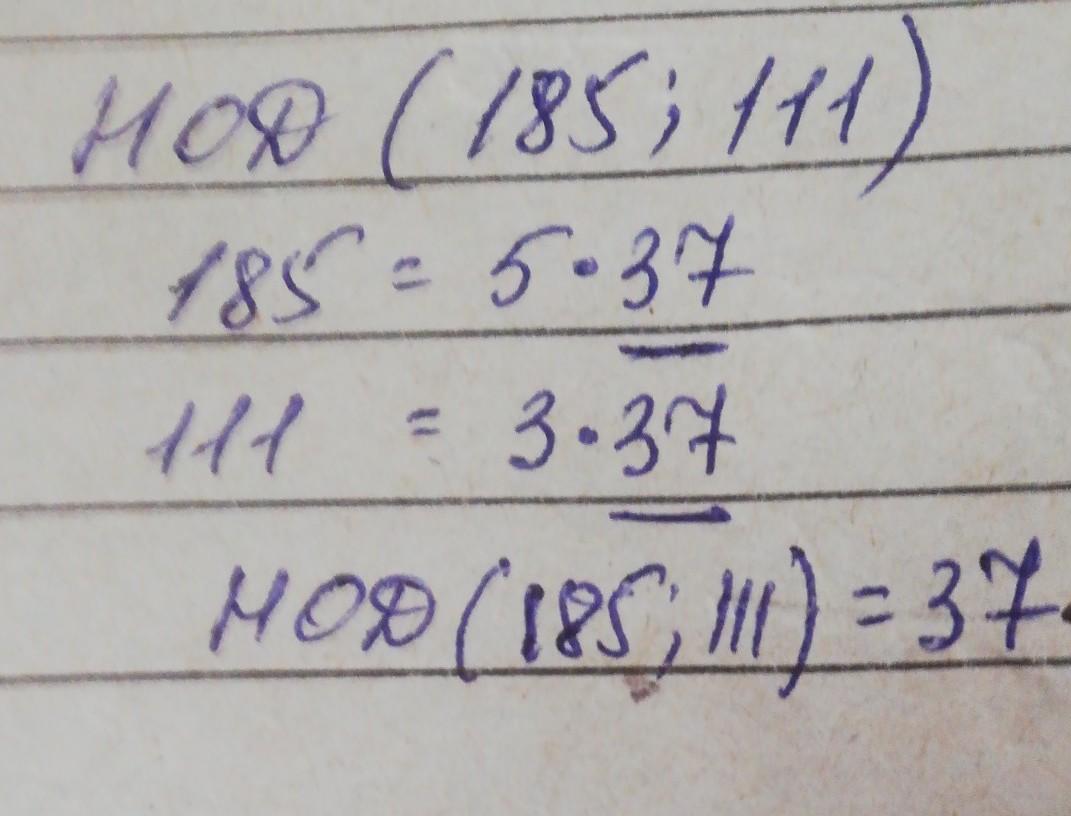 НОД (185; 111)
185 = 5·37
111 = 3·37
НОД (185; 111) = 37.